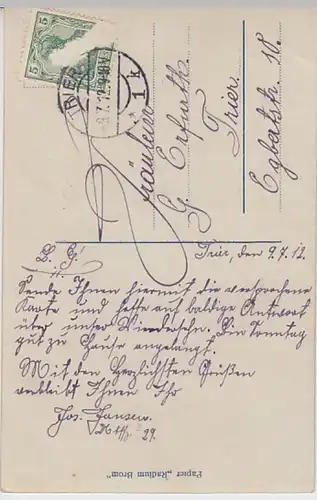 5
5
TRIER
9.7.12
1k
Fräulein
G. Erfurth.
Trier.
Egbertstr. 18.
Trier, den 9.7.12.
L. G!
Sende Ihnen hiermit die versprochene
Karte und hoffe auf baldige Antwort
über unser Wiedersehn. Bin Sonntag
gut zu Hause angelangt.
Mit den Herzlichsten Grüßen
verbleibt Ihnen Ihr
Jos. Jansen.
29.
Papier „Radium Brom"